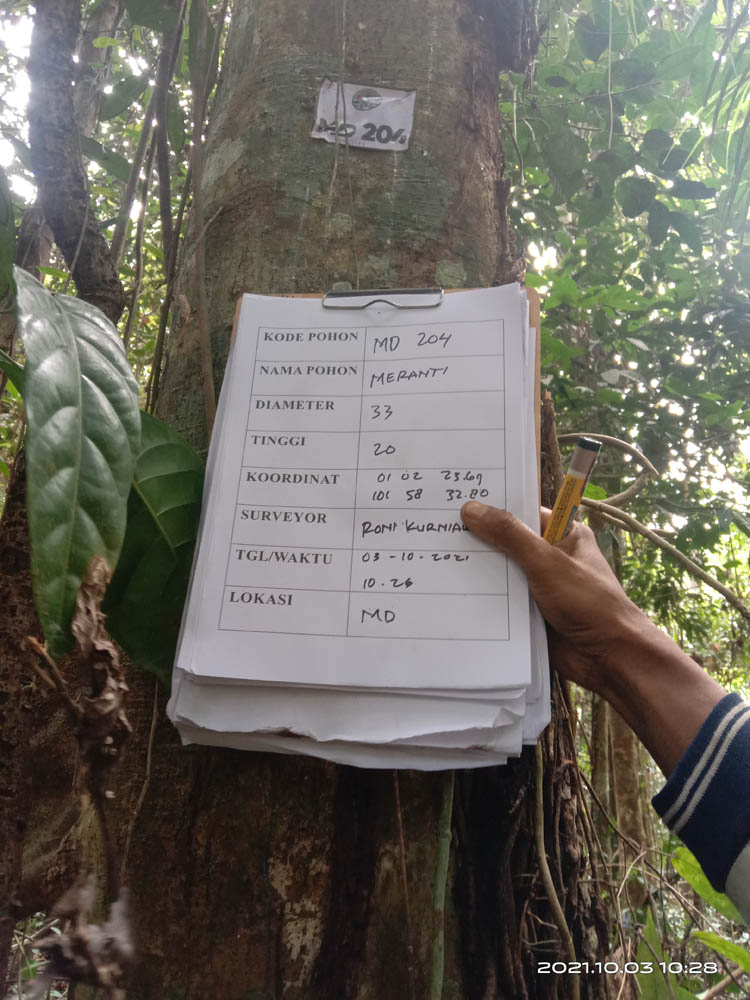 MD 204
KODE POHON MD 204
NAMA POHON MERANTI
DIAMETER 33
TINGGI 20
KOORDINAT 01 02 23.69
101 58 32.80
SURVEYOR RONI KURNIAW
TGL/WAKTU 03-10-2021
10.26
LOKASI MD
2021.10.03 10:28